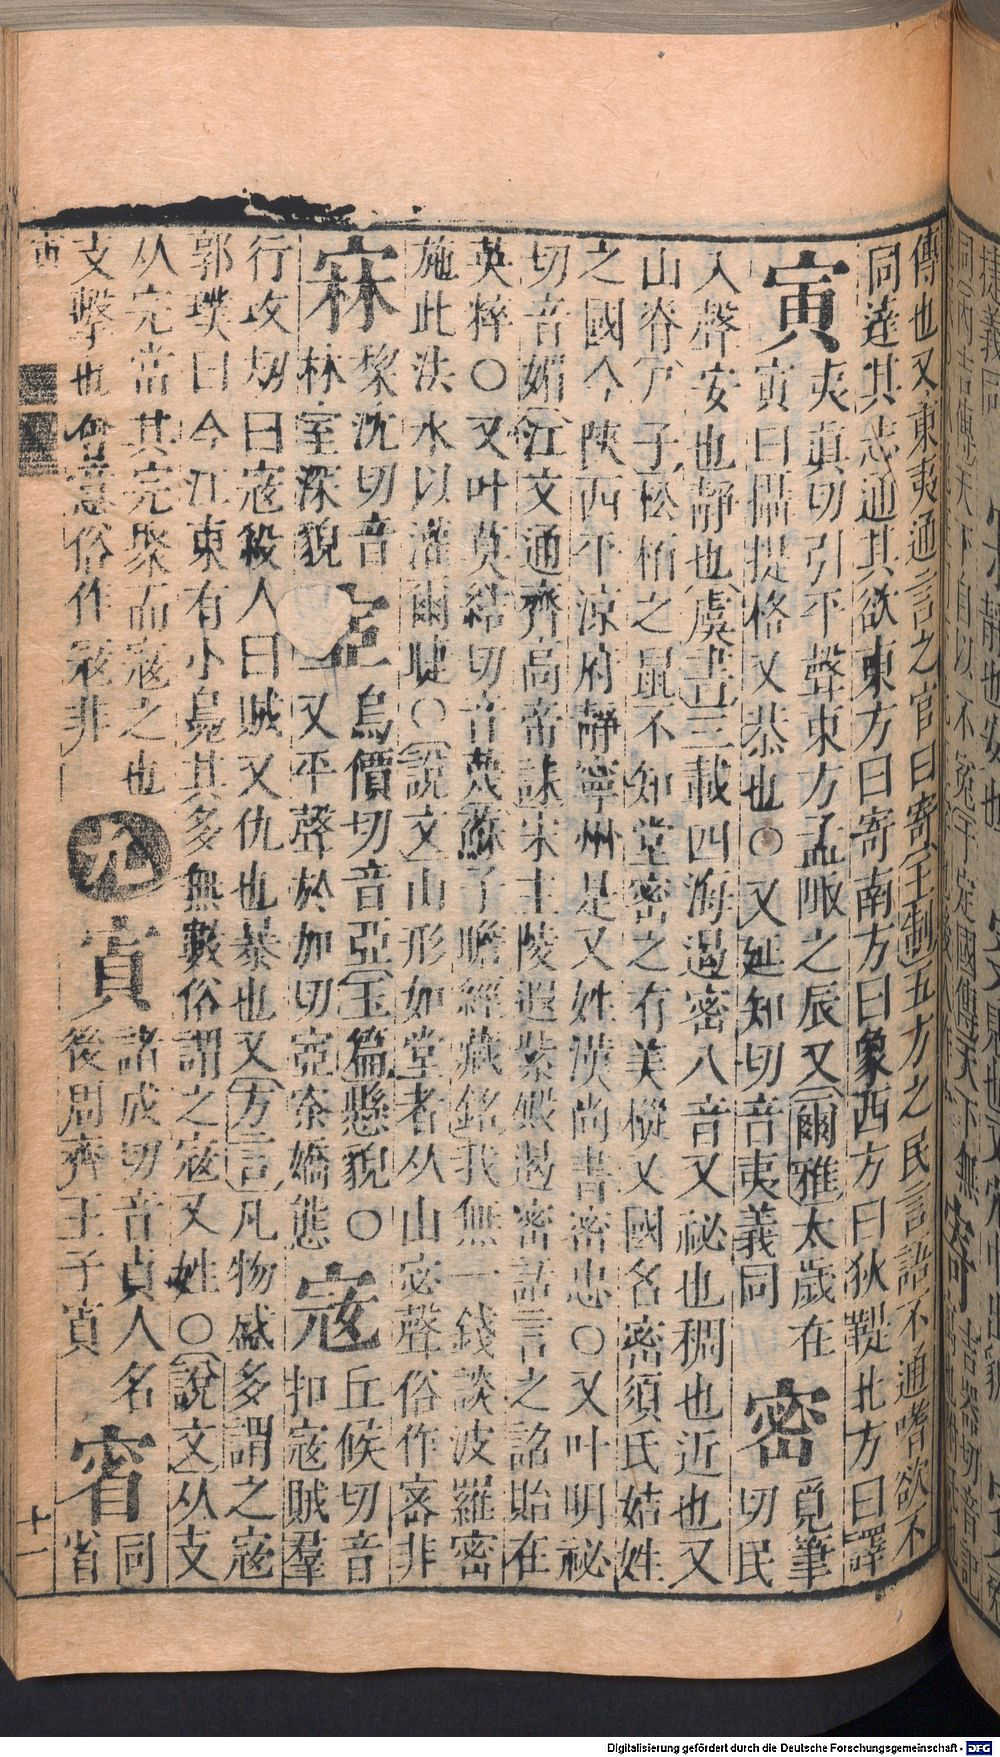 傳也又東夷通言之官曰寄王制五方之民言語不通嗜欲不
同達其志通其欲東方曰寄南方曰象西方曰狄鞮北方曰譯
寅
夷眞切引平聲東方孟陬之辰又爾雅太歲在
寅曰攝提格又恭也○又延知切音夷義同
密
覓筆
切民
入聲安也靜也虞書三載四海遏密八音又祕也稠也近也又
山脊尸子松栢之鼠不知堂密之有美樅又國名密須氏姞姓
之國今陝西平涼府靜寧州是又姓漢尚書密忠○又叶明祕
切音媚江文通齊高帝誄宋主陵遐紫嬍遏密話言之詺貽在
英粹○又叶莫結切音蔑蘇子瞻經藏銘我無一錢談波羅密
施此洪水以灌爾睫○說文山形如堂者从山宓聲俗作宻非
㝝
棃沈切音
林室深貌
烏價切音亞玉篇懸貌○
又平聲於加切窊寮嬌態
寇
丘候切音
扣寇賊羣
行攻刼曰寇殺人曰賊又仇也暴也又方言凡物盛多謂之寇
郭璞曰今江東有小鳧其多無數俗謂之寇又姓○說文从支
从完當其完聚而寇之也
支擊也會意俗作宼非
九
寊
諸成切音貞人名
後周齊王子寊
㝨
同
省
十一
Digitalisierung gefördert durch die Deutsche Forschungsgemeinschaft - DFG